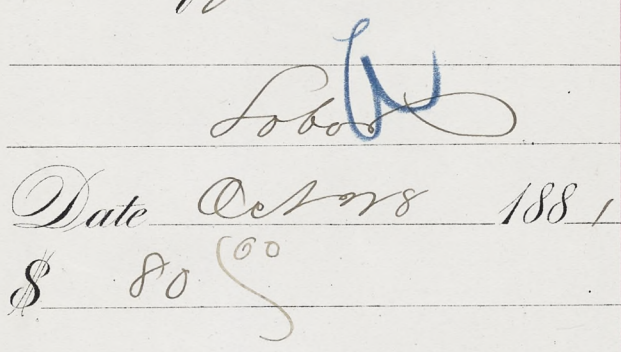 Labor
Date Oct 28 1881
$ 80 00